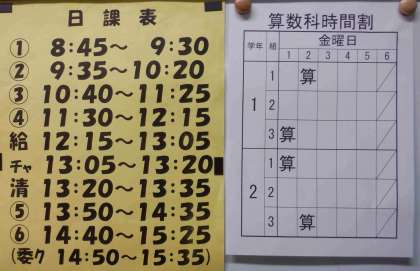 日課表
① 8:45～ 9:30
② 9:35～10:20
③ 10:40～11:25
④ 11:30～12:15
給 12:15～13:05
チャ 13:05～13:20
清 13:20～13:35
⑤ 13:50～14:35
⑥ 14:40～15:25
(委ク 14:50～15:35)
算数科時間割
学年 組 金曜日
1 2 3 4 5 6
1 1 算
2
3 算
2 1 算
2
3 算